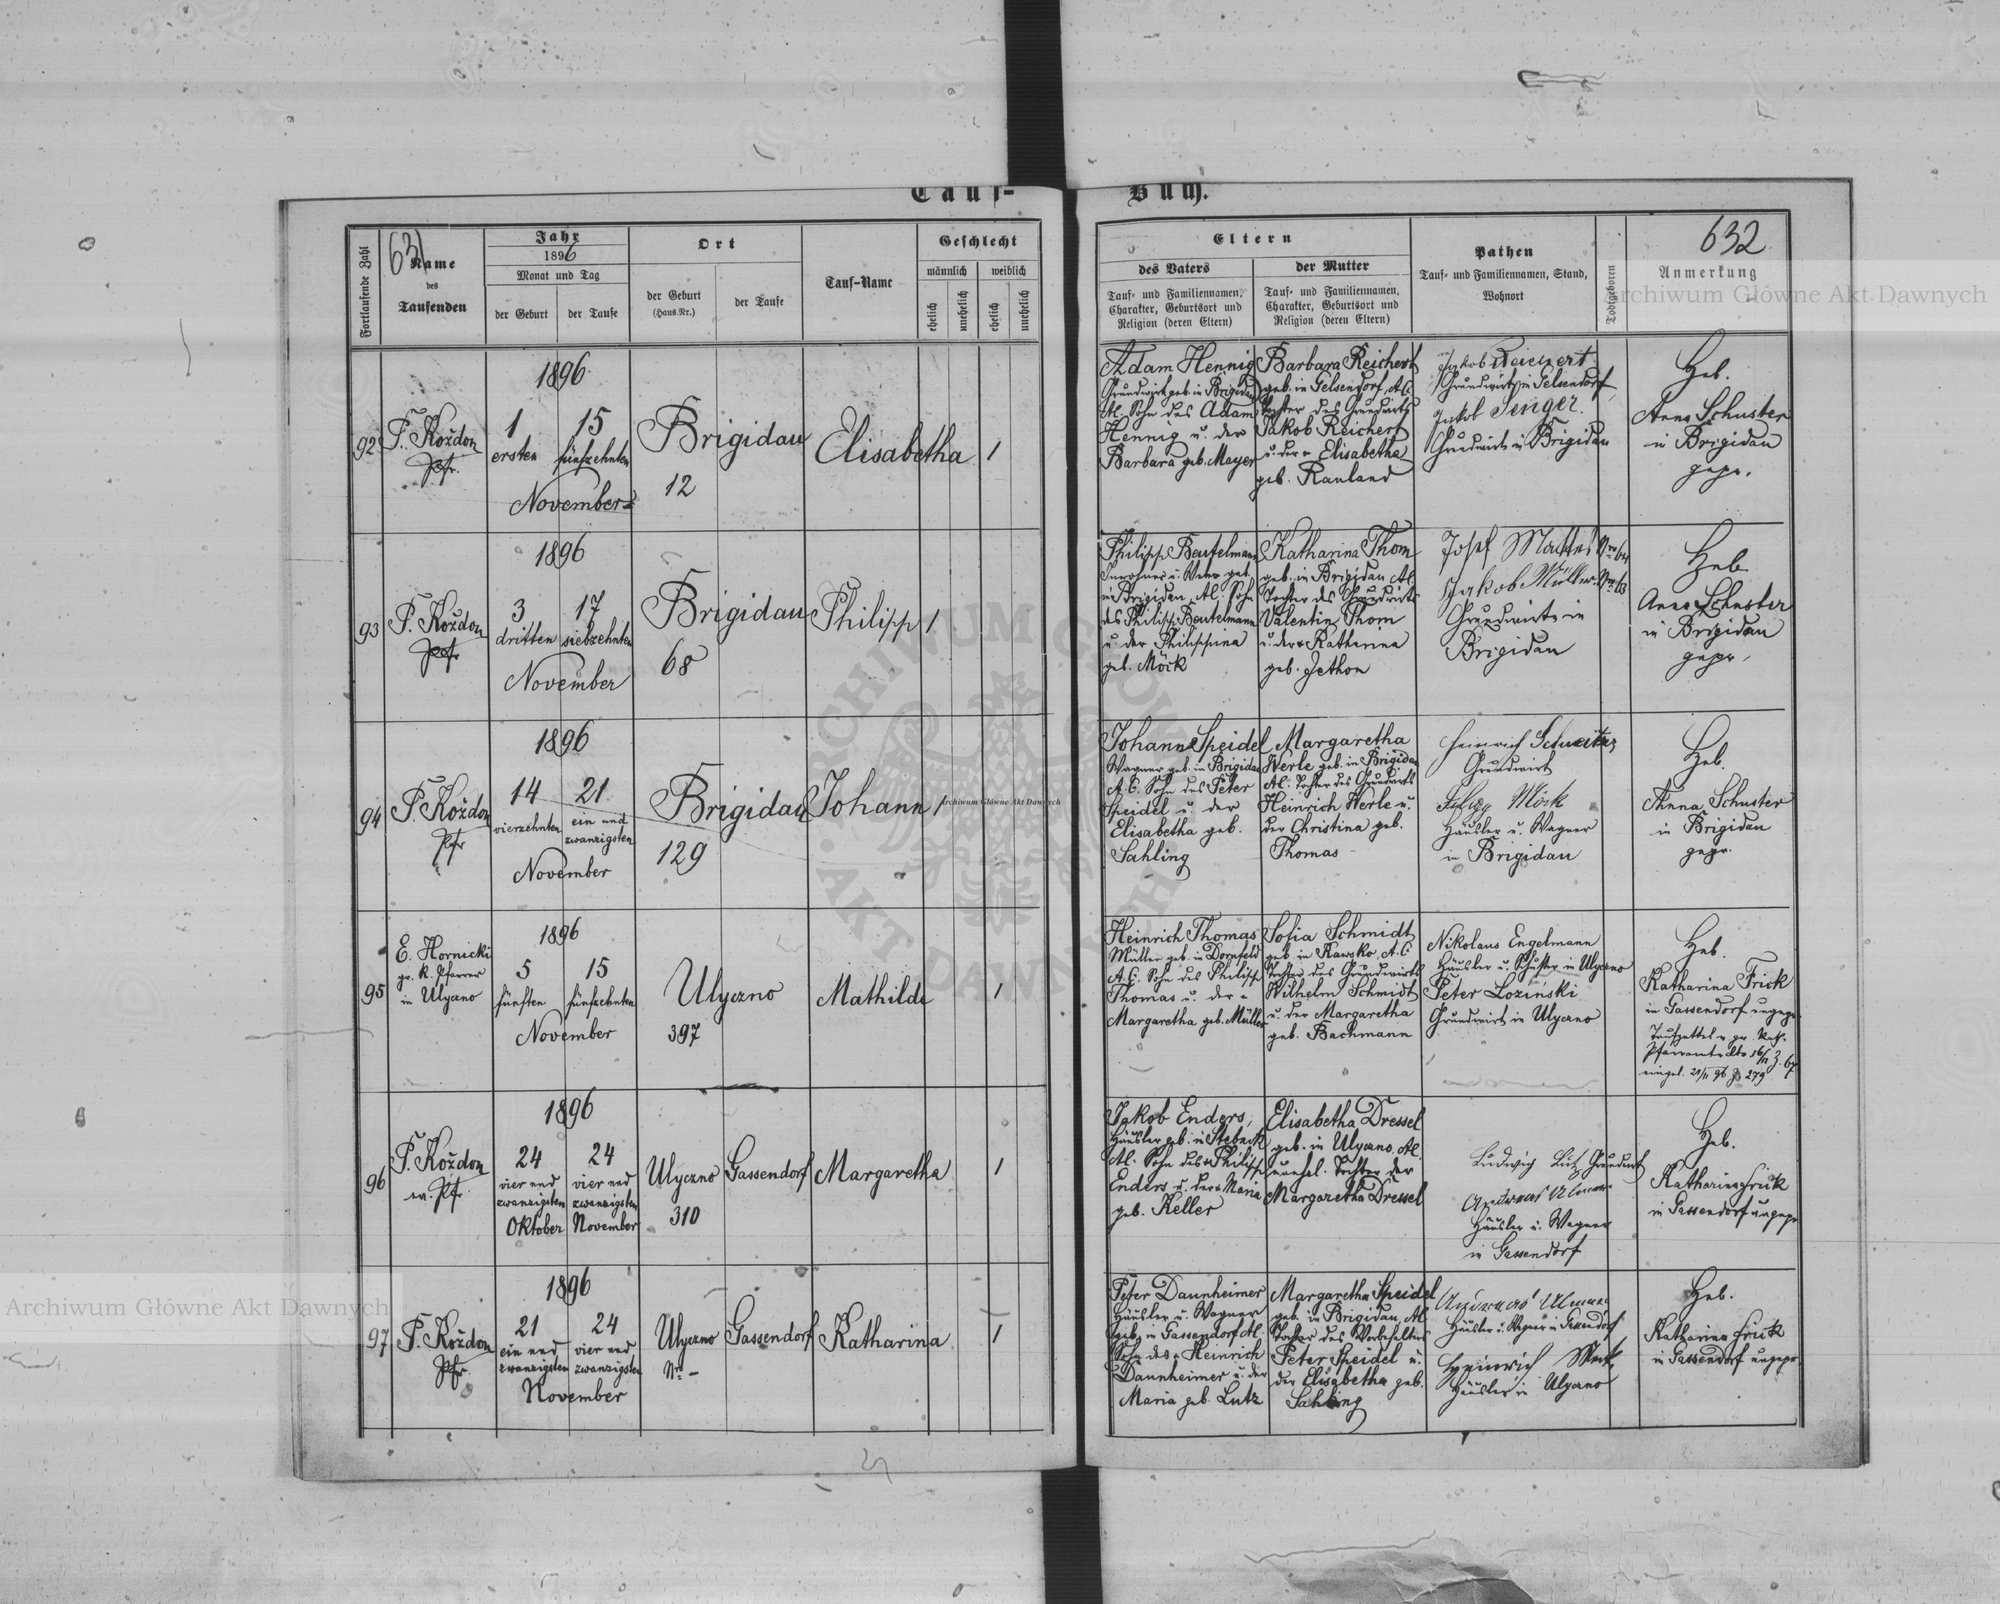 Tauf-
Buch.
631
632
Fortlaufende Zahl
Name
des
Taufenden
Jahr
1896
Monat und Tag
der Geburt
der Taufe
Ort
der Geburt
(Haus-Nr.)
der Taufe
Tauf-Name
Geschlecht
männlich
weiblich
ehelich
unehelich
ehelich
unehelich
Eltern
des Vaters
Tauf- und Familiennamen,
Charakter, Geburtsort und
Religion (deren Eltern)
der Mutter
Tauf- und Familiennamen,
Charakter, Geburtsort und
Religion (deren Eltern)
Pathen
Tauf- und Familiennamen, Stand,
Wohnort
Todtgeboren
Anmerkung
92
F. Koždon
Pfr.
1896
1
ersten
15
fünfzehnten
November
Brigidau
12
Elisabetha
1
Adam Hennig
Grundwirt geb. in Brigidau
Al. Sohn des Adam
Hennig u. der
Barbara geb. Mayer
Barbara Reichert
geb. in Gelsendorf, A.C.
Tochter des Grundwirts
Jakob Reichert
u. der Elisabetha
geb. Rauland
Jakob Reichert
Grundwirt in Gelsendorf
Jakob Senger
Grundwirt in Brigidau
Heb.
Anna Schuster
in Brigidau
gepr.
93
F. Koždon
Pfr
1896
3
dritten
17
siebzehnten
November
Brigidau
68
Philipp
1
Philipp Beutelmann
Inwohner u. Weber geb.
in Brigidau, Al. Sohn
des Philipp Beutelmann
u. der Philippina
geb. Möck
Katharina Thom
geb. in Brigidau Al.
Tochter des Grundwirts
Valentin Thom
u. der Katharina
geb. Jethon
Josef Mattes Nro 64
Jakob Müller Nro 63
Grundwirte in
Brigidau
Heb.
Anna Schuster
in Brigidau
gepr.
94
F. Koždon
Pfr
1896
14
vierzehnten
21
ein und
zwanzigsten
November
Brigidau
129
Johann
1
Johann Speidel
Wagner geb. in Brigidau
A.C. Sohn des Peter
Speidel u. der
Elisabetha geb.
Sahling
Margaretha
Werle geb. in Brigidau
Al. Tochter des Grundwirts
Heinrich Werle u.
der Christina geb.
Thomas
Heinrich Schweitzer
Grundwirt
Möck
Häusler u. Wagner
in Brigidau
Heb.
Anna Schuster
in Brigidau
gepr.
95
E. Hornicki
gr. k. Pfarrer
in Ulyczno
1896
5
fünften
15
fünfzehnten
November
Ulyczno
397
Mathilde
1
Heinrich Thomas
Müller geb. in Dornfeld
A.C. Sohn des Philipp
Thomas u. der
Margaretha geb. Müller
Sofia Schmidt
geb. in Rawsko, A.C
Tochter des Grundwirts
Wilhelm Schmidt
u. der Margaretha
geb. Bachmann
Nikolaus Engelmann
Häusler u. Schuster in Ulyczno
Peter Łoziński
Grundwirt in Ulyczno
Heb.
Katharina Frick
in Gassendorf ungepr.
Taufzettel v. gr. kath.
Pfarramte dto 16/11 Z. 67
eingel. 21/11 96 Z 279
96
F. Koždon
ev. Pfr.
1896
24
vier und
zwanzigsten
Oktober
24
vier und
zwanzigsten
November
Ulyczno
310
Gassendorf
Margaretha
1
Jakob Enders,
Häusler geb. in Stebnik
Al. Sohn des Philipp
Enders u. der Maria
geb. Keller
Elisabetha Dressel
geb. in Ulyczno, Al.
unehel. Tochter der
Margaretha Dressel
Ludwig Lutz Grundwirt
Andreas Ulmann
Häusler u. Wagner
in Gassendorf
Heb.
Katharina Frick
in Gassendorf ungepr
97
F. Koždon
Pfr.
1896
21
ein und
zwanzigsten
24
vier und
zwanzigsten
November
Ulyczno
Nr. -
Gassendorf
Katharina
1
Peter Daunheimer
Häusler u. Wagner
geb. in Gassendorf Al.
Sohn des Heinrich
Daunheimer u. der
Maria geb. Lutz
Margaretha Speidel
geb. in Brigidau, Al.
Tochter des Vorbehaltens
Peter Speidel u.
der Elisabetha geb.
Sahling
Andreas Ulmann
Häusler u. Wagner in Gassendorf
Heinrich
Häusler in Ulyczno
Heb.
Katharina Frick
in Gassendorf ungepr
Archiwum Główne Akt Dawnych
Archiwum Główne Akt Dawnych
Archiwum Główne Akt Dawnych
ARCHIWUM GŁÓWNE
AKT DAWNYCH